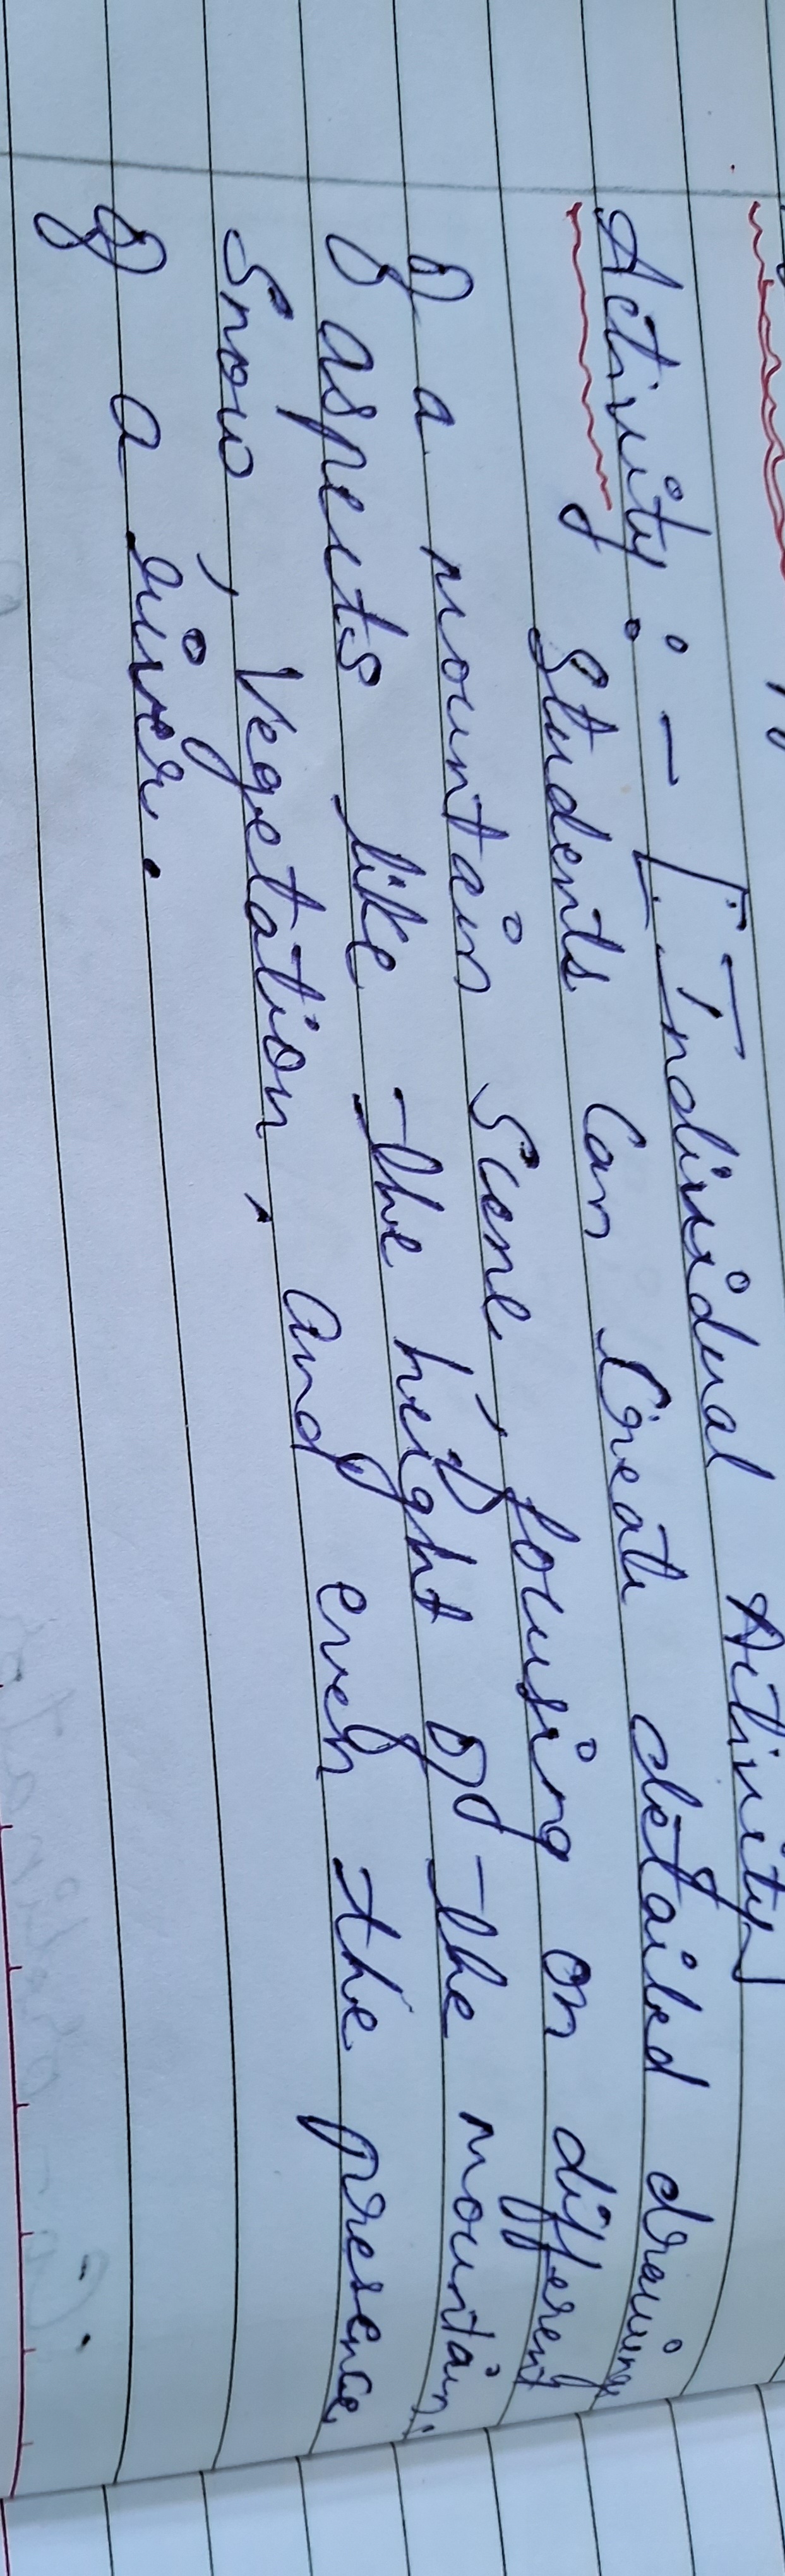 Activity :- [Individual Activity]
Students can create detailed drawings
of a mountain scene, focusing on different
of aspects like the height of the mountain,
snow, vegetation, and even the presence
of a river.